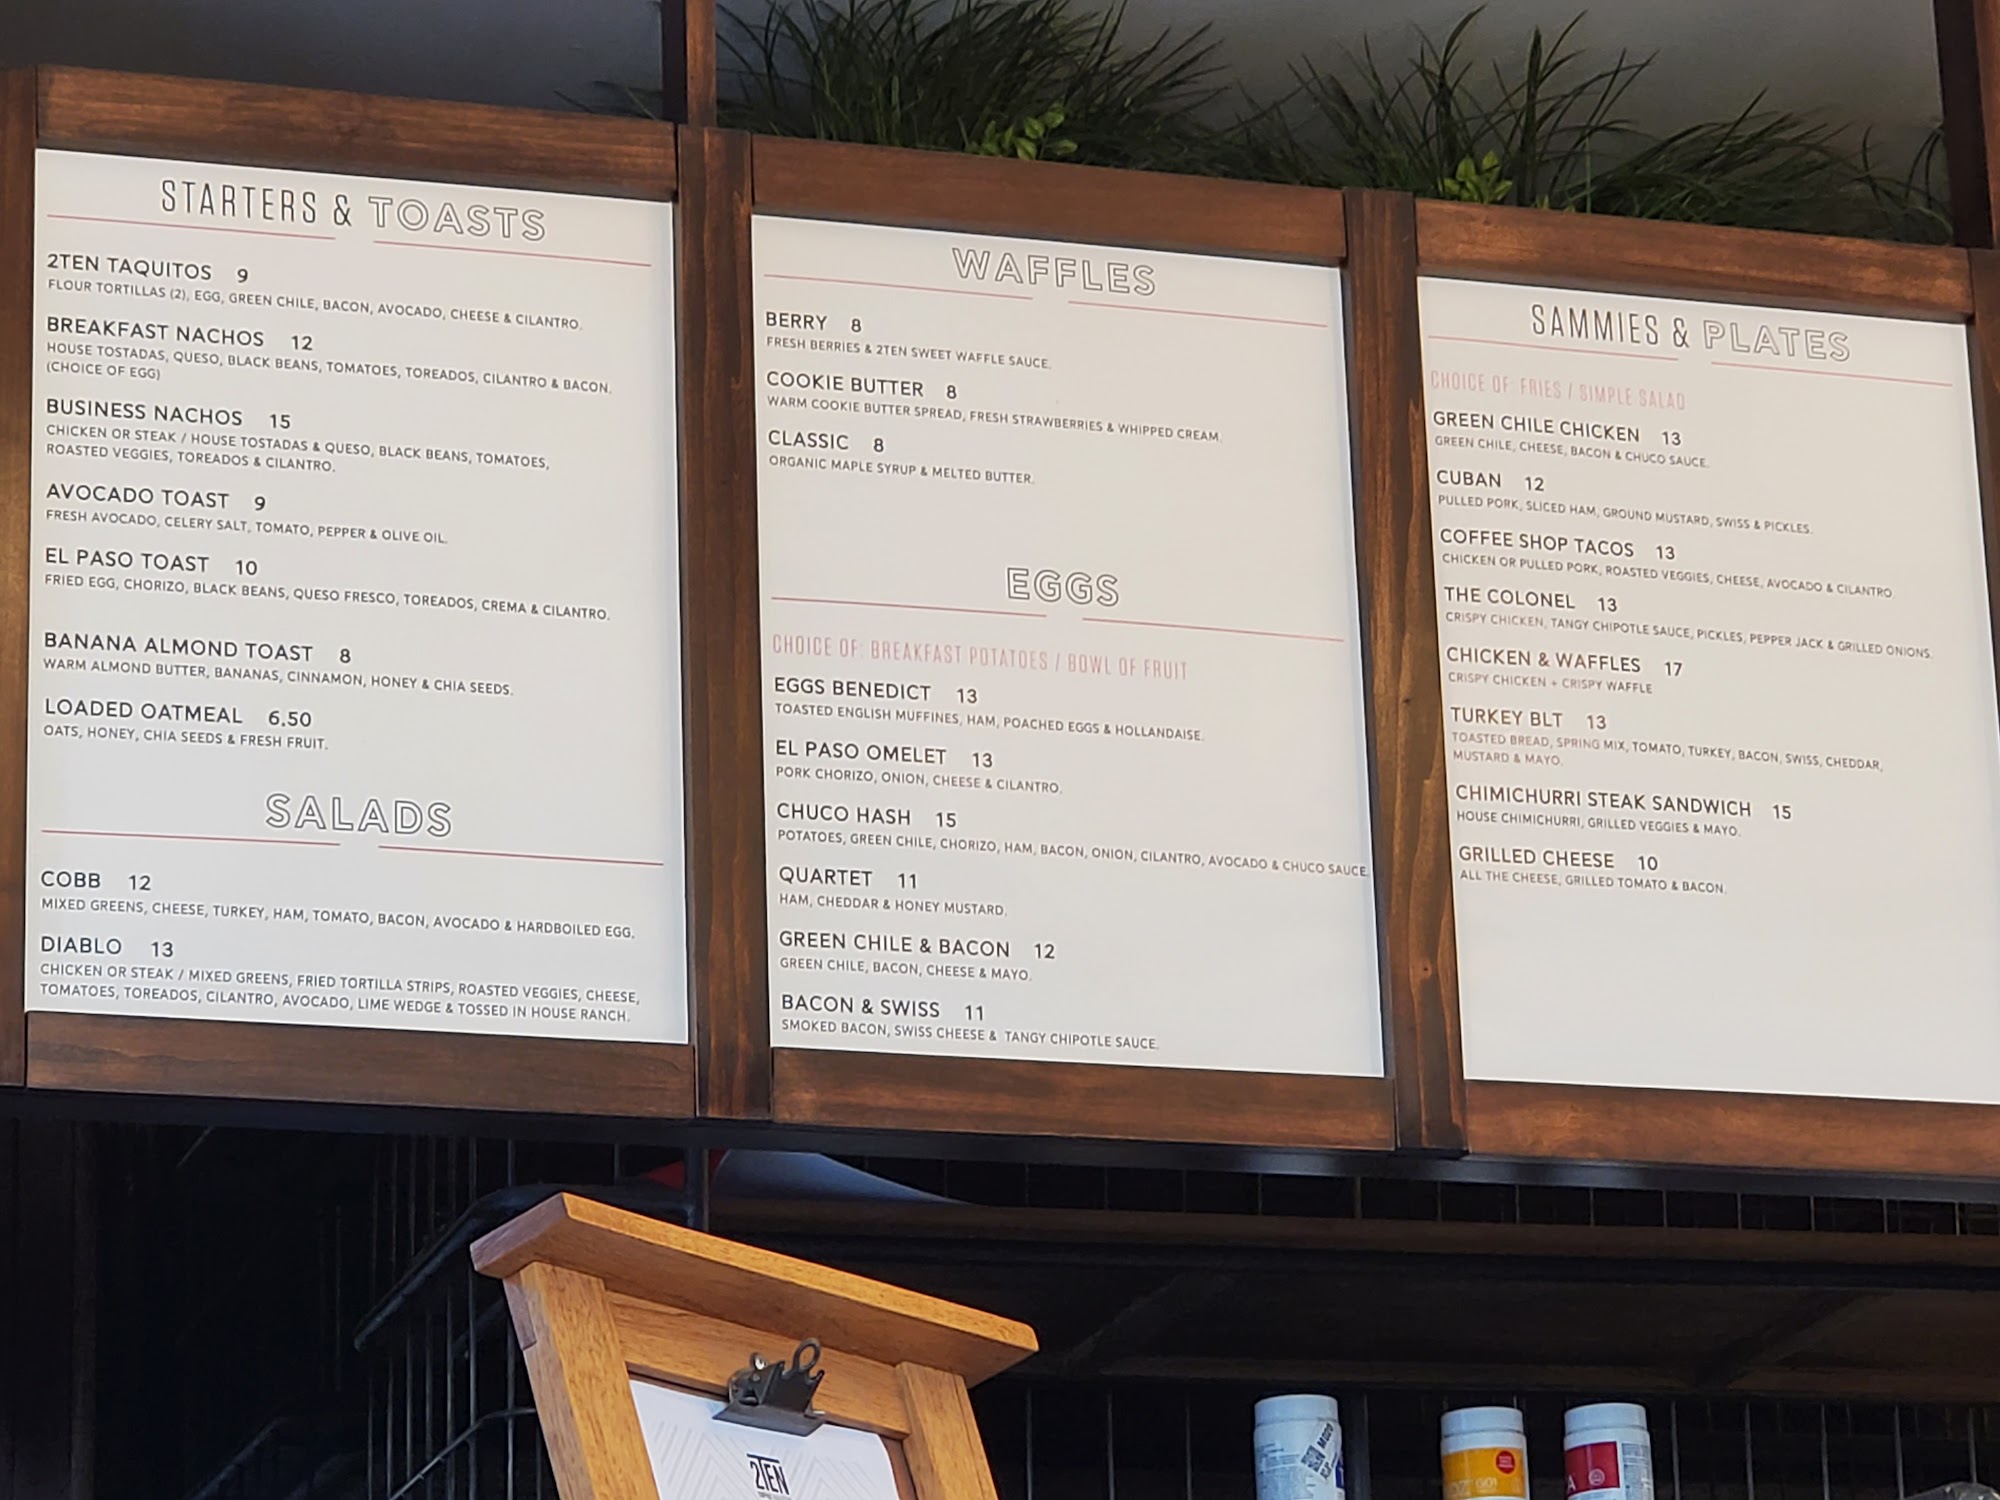 STARTERS & TOASTS
2TEN TAQUITOS 9
FLOUR TORTILLAS (2), EGG, GREEN CHILE, BACON, AVOCADO, CHEESE & CILANTRO.
BREAKFAST NACHOS 12
HOUSE TOSTADAS, QUESO, BLACK BEANS, TOMATOES, TOREADOS, CILANTRO & BACON.
(CHOICE OF EGG)
BUSINESS NACHOS 15
CHICKEN OR STEAK / HOUSE TOSTADAS & QUESO, BLACK BEANS, TOMATOES,
ROASTED VEGGIES, TOREADOS & CILANTRO.
AVOCADO TOAST 9
FRESH AVOCADO, CELERY SALT, TOMATO, PEPPER & OLIVE OIL.
EL PASO TOAST 10
FRIED EGG, CHORIZO, BLACK BEANS, QUESO FRESCO, TOREADOS, CREMA & CILANTRO.
BANANA ALMOND TOAST 8
WARM ALMOND BUTTER, BANANAS, CINNAMON, HONEY & CHIA SEEDS.
LOADED OATMEAL 6.50
OATS, HONEY, CHIA SEEDS & FRESH FRUIT.
SALADS
COBB 12
MIXED GREENS, CHEESE, TURKEY, HAM, TOMATO, BACON, AVOCADO & HARDBOILED EGG.
DIABLO 13
CHICKEN OR STEAK / MIXED GREENS, FRIED TORTILLA STRIPS, ROASTED VEGGIES, CHEESE,
TOMATOES, TOREADOS, CILANTRO, AVOCADO, LIME WEDGE & TOSSED IN HOUSE RANCH.
WAFFLES
BERRY 8
FRESH BERRIES & 2TEN SWEET WAFFLE SAUCE.
COOKIE BUTTER 8
WARM COOKIE BUTTER SPREAD, FRESH STRAWBERRIES & WHIPPED CREAM.
CLASSIC 8
ORGANIC MAPLE SYRUP & MELTED BUTTER.
EGGS
CHOICE OF: BREAKFAST POTATOES / BOWL OF FRUIT
EGGS BENEDICT 13
TOASTED ENGLISH MUFFINES, HAM, POACHED EGGS & HOLLANDAISE.
EL PASO OMELET 13
PORK CHORIZO, ONION, CHEESE & CILANTRO.
CHUCO HASH 15
POTATOES, GREEN CHILE, CHORIZO, HAM, BACON, ONION, CILANTRO, AVOCADO & CHUCO SAUCE.
QUARTET 11
HAM, CHEDDAR & HONEY MUSTARD.
GREEN CHILE & BACON 12
GREEN CHILE, BACON, CHEESE & MAYO.
BACON & SWISS 11
SMOKED BACON, SWISS CHEESE & TANGY CHIPOTLE SAUCE.
SAMMIES & PLATES
CHOICE OF: FRIES / SIMPLE SALAD
GREEN CHILE CHICKEN 13
GREEN CHILE, CHEESE, BACON & CHUCO SAUCE.
CUBAN 12
PULLED PORK, SLICED HAM, GROUND MUSTARD, SWISS & PICKLES.
COFFEE SHOP TACOS 13
CHICKEN OR PULLED PORK, ROASTED VEGGIES, CHEESE, AVOCADO & CILANTRO.
THE COLONEL 13
CRISPY CHICKEN, TANGY CHIPOTLE SAUCE, PICKLES, PEPPER JACK & GRILLED ONIONS.
CHICKEN & WAFFLES 17
CRISPY CHICKEN + CRISPY WAFFLE
TURKEY BLT 13
TOASTED BREAD, SPRING MIX, TOMATO, TURKEY, BACON, SWISS, CHEDDAR,
MUSTARD & MAYO.
CHIMICHURRI STEAK SANDWICH 15
HOUSE CHIMICHURRI, GRILLED VEGGIES & MAYO.
GRILLED CHEESE 10
ALL THE CHEESE, GRILLED TOMATO & BACON.
2TEN